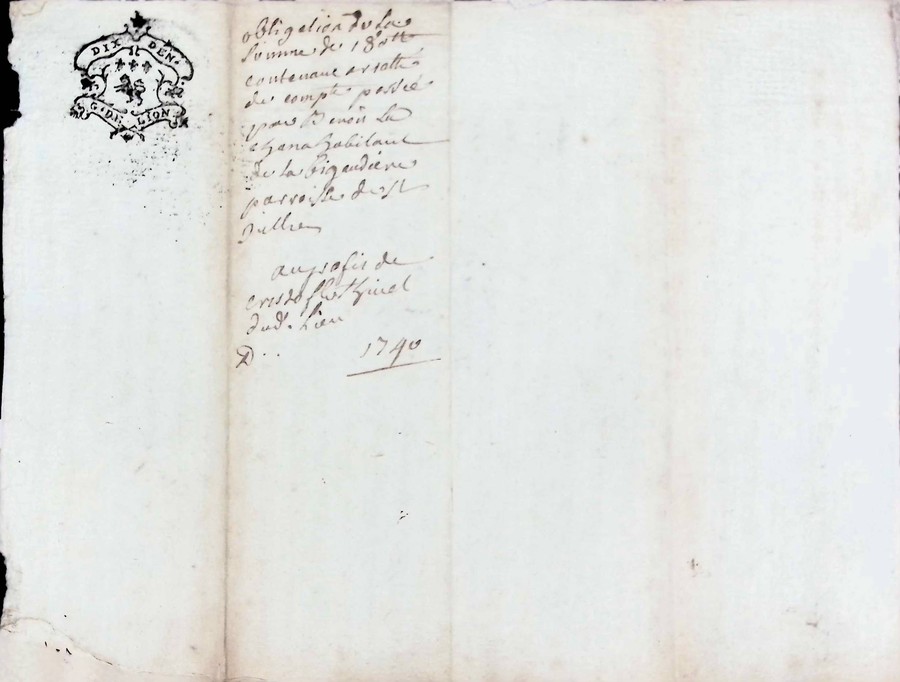 DIX DEN.
G. DE LION
obligation de La
somme de 180 tt
contenant arrette
de compte passée
par Benoit La
chana habitant
de la Bigaudiere
parroisse de St
au profit de
cristofle
dud. Lieu
D..
1740